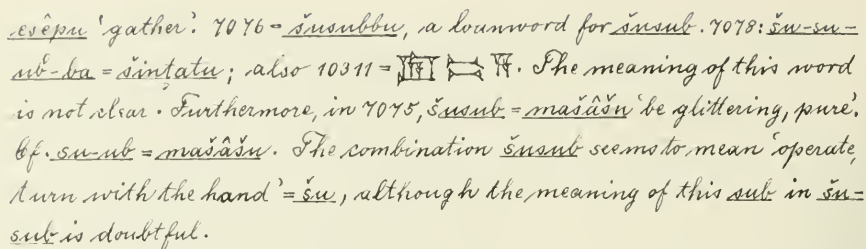 esêpu 'gather'. 7076 = šusubbu, a loanword for šusub. 7078: šu-su-
ub-ba = šintatu; also 10311 = 𒀀. The meaning of this word
is not clear. Furthermore, in 7075, šusub = mašâšu 'be glittering, pure'.
Cf. su-ub = mašâšu. The combination šusub seems to mean 'operate,
turn with the hand' = šu, although the meaning of this sub in šu-
sub is doubtful.